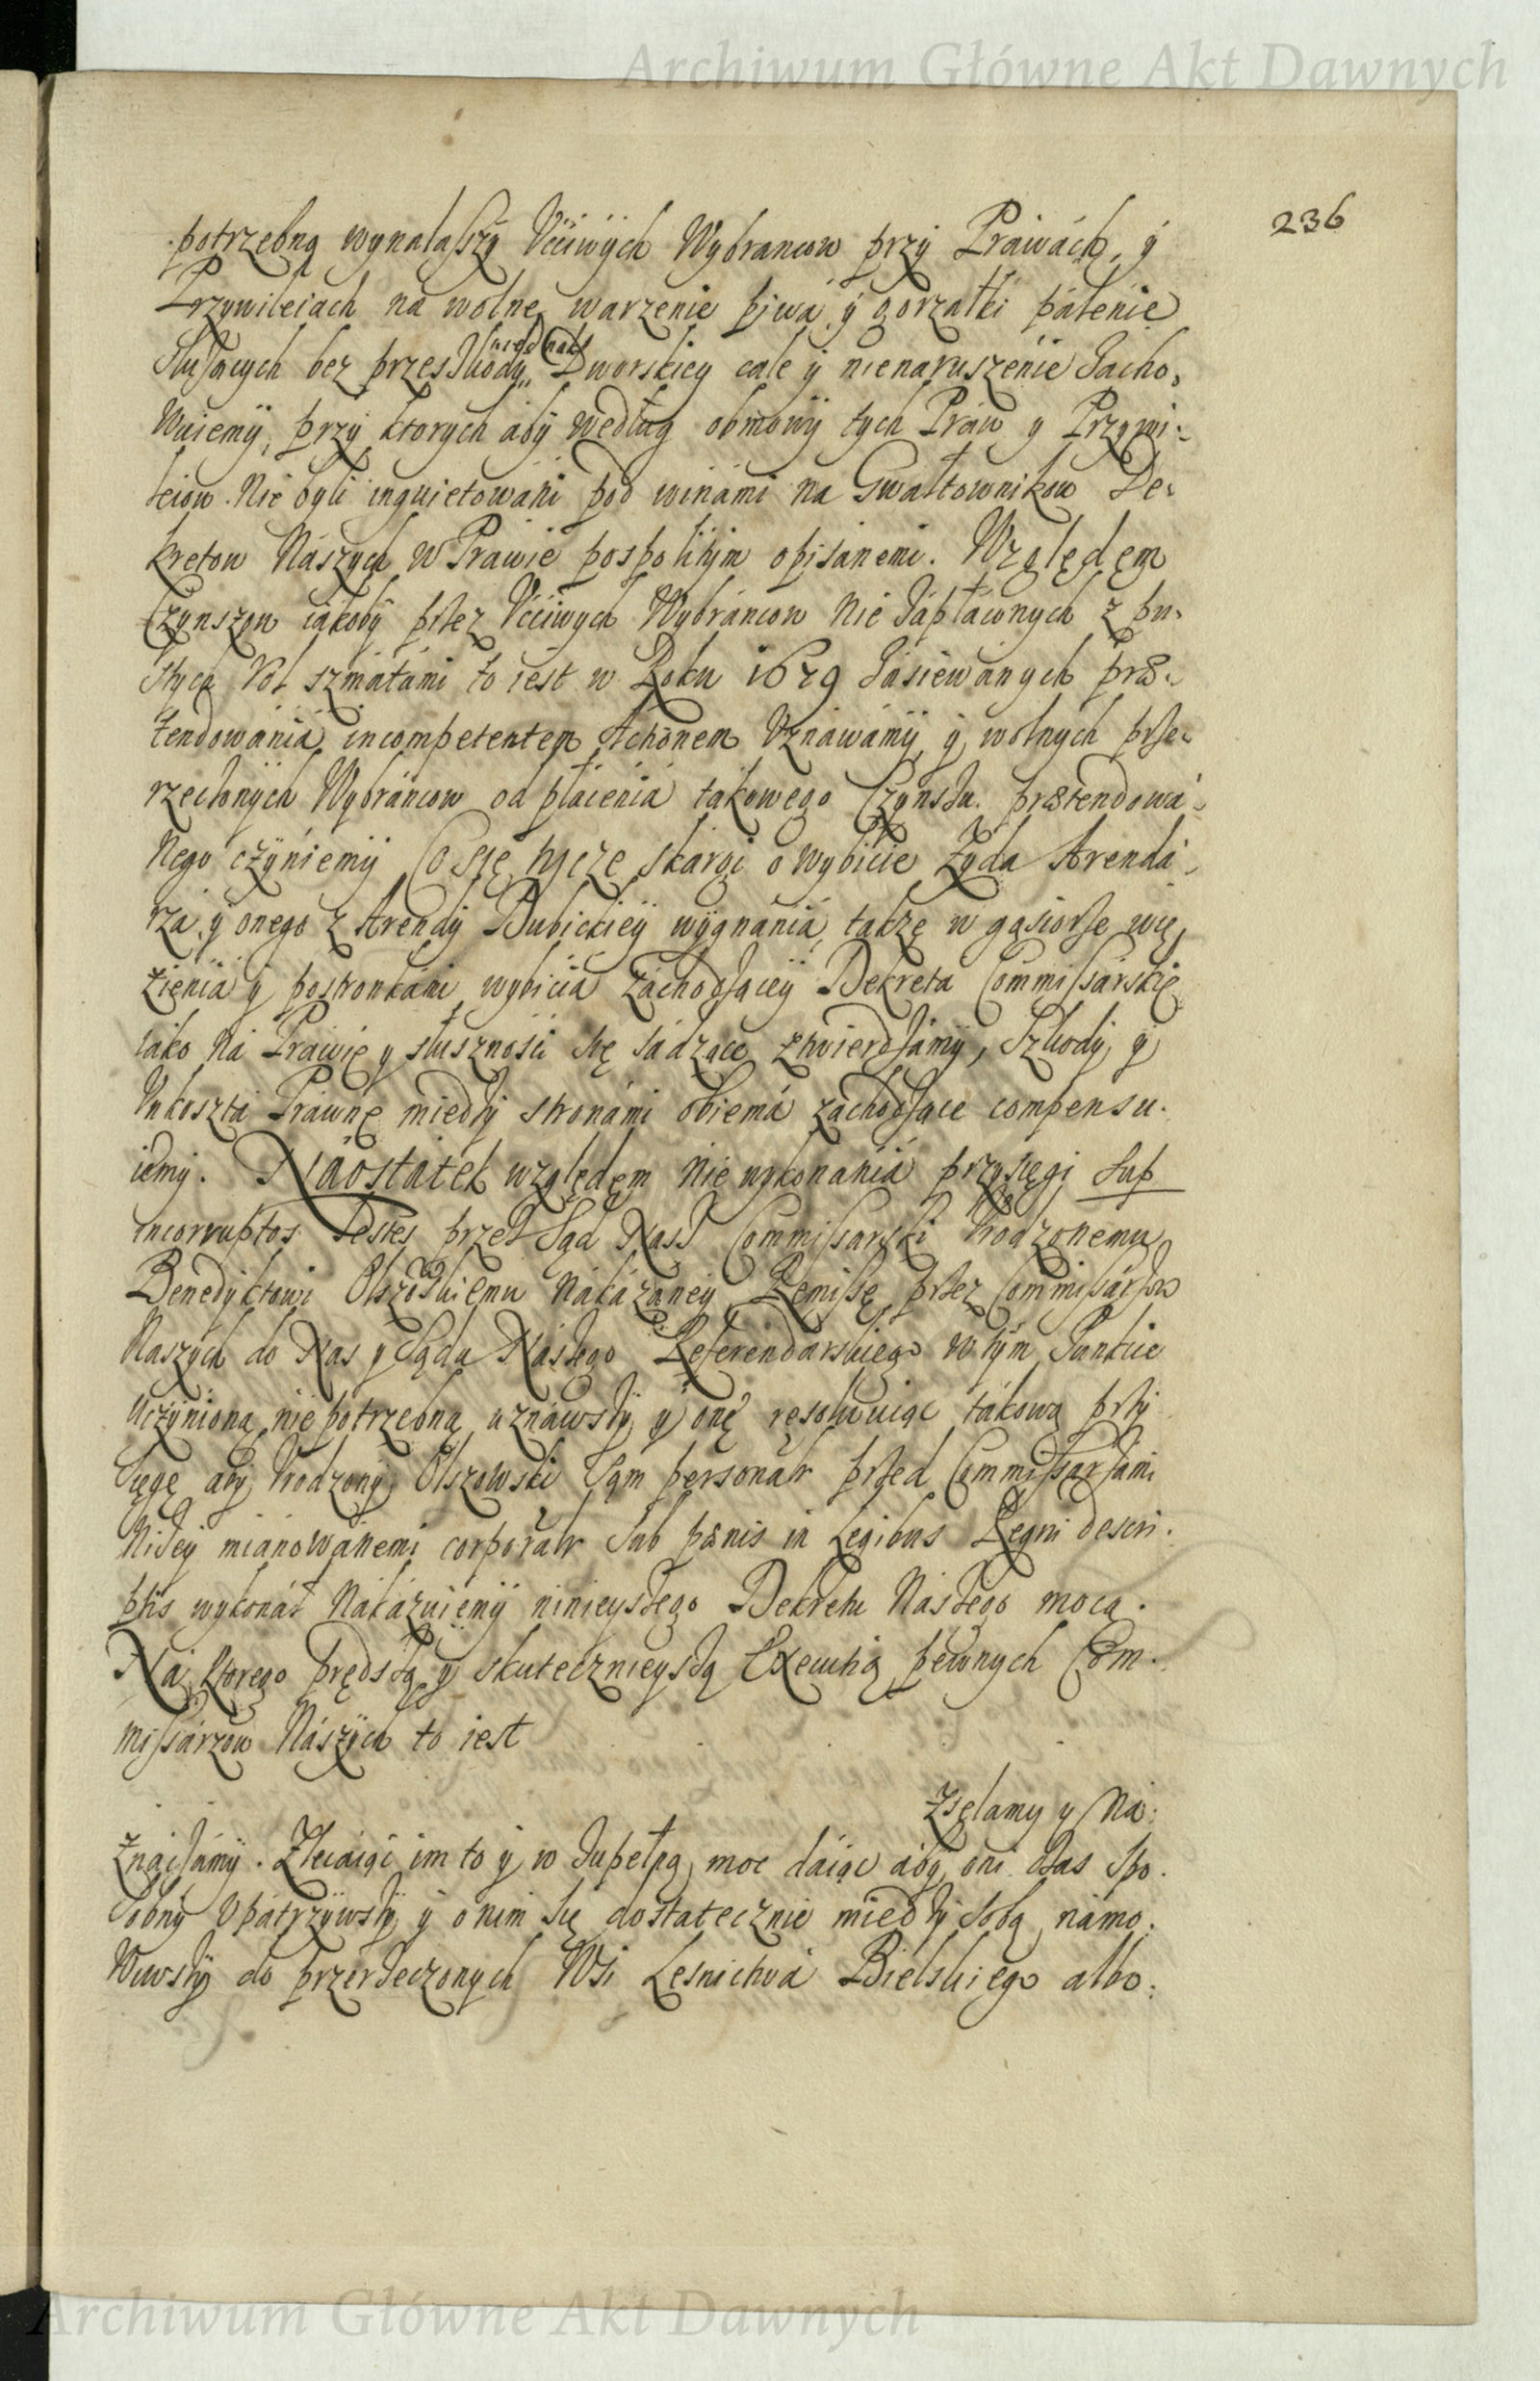 Archiwum Główne Akt Dawnych
236
potrzebną wynalaszy Vcciwych Wybrancow przy Prawách, y
Przywileiach na wolne warzenie piwá y gorzałki pálenie
Służących bez przeszkody Dworskiey cale y nienaruszenie Zacho,
wuiemy, przy ktorych áby według obmowy tych Práw y Przywi-
leiow. Nie byli inquietowáni pod winámi na Gwałtownikow De-
kretow Nászych w Práwie pospolitym opisanemi. Względem
Czynszow iákoby przez Vcciwych Wybráncow Nie Zápłáconych z pu-
stych Vol szmátámi to iest w Roku 1679 Zásiewánych præ-
tendowánia incompetentem Actionem Vznáwámy y wolnych prze-
rzeczonych Wybráncow od płácenia tákowego Czynszu prætendowá-
Nego czyniemy Co się tycze skargi o wybicie Zyda Arendá-
rzá y onego z Arendy Dubickiey wygnánia, tákze w gąsiorze wię,
zienia y postronkámi wybicia záchodzącey Dekreta Commissárskie
iáko ná Práwie y słusznosci się sádzące ztwierdzámy, Szkody y
Vnkosztá Práwne miedzy stronámi obiemá záchodzące compensu-
iemy. Náostátek względem nie wykonánia przysięgi Sup
incorruptos Testes przez Sąd Nasz Commissarski Vrodzonemu
Benedyktowi Olszowskiemu Nákázáney Remissę przez Commissárzow
Naszych do Nas y Sądu Nászego Referendarskiego w tym Punkcie
Vczynioną niepotrzebną uznáwszy y onę resolwuiąc tákową przy
sięgę áby Vrodzony Olszowski Sąm personalr przed Commissárzámi
Nizey miánowánemi corporalr Sub pænis in Legibus Regni descri-
ptis wykonáł Nákázuiemy ninieyszego Dekretu Nászego mocą.
Ná ktorego prędszą y skutecznieyszą Executią pewnych Com-
missárzow Nászych to iest
Zsęlamy y Na-
znaczámy. Zlecáiąc im to y w Zupełną moc dáiąc áby oni czas Spo-
sobny Vpátrzywszy y o nim się dostatecznie miedzy sobą námo-
Wiwszy do przerzeczonych Wsi Lesnictwá Bielskiego albo-
Archiwum Główne Akt Dawnych